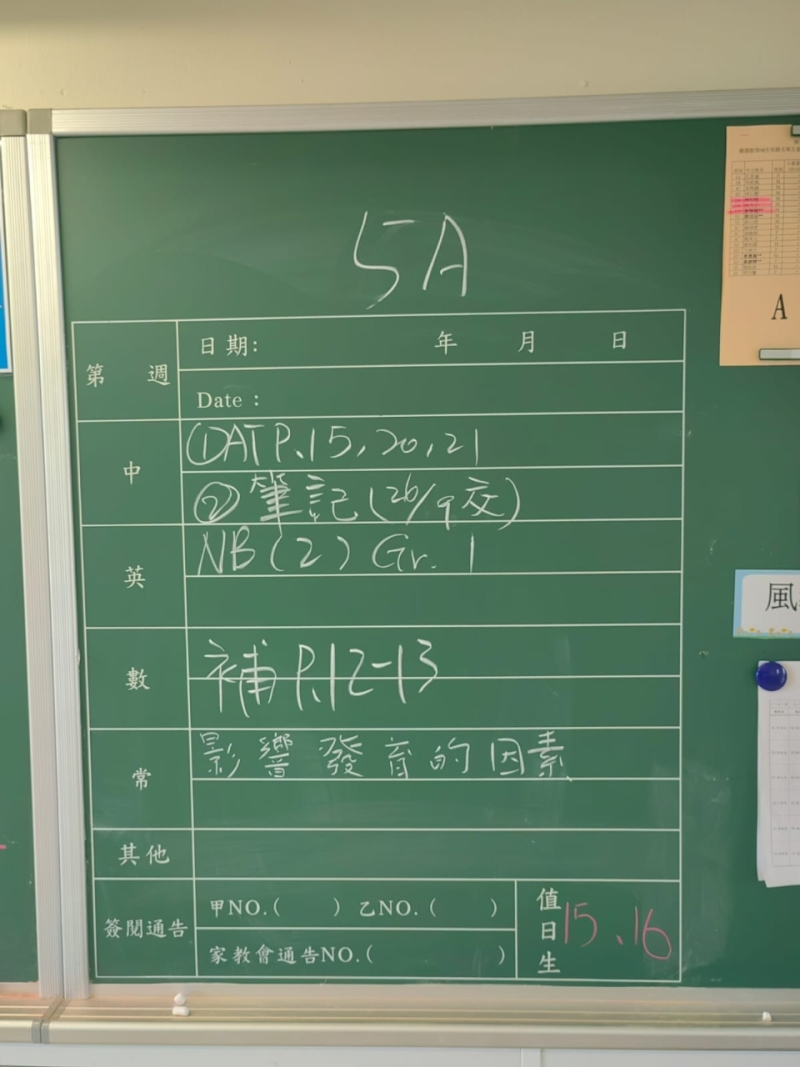 5A
第 週
日期: 年 月 日
Date :
中
①DAT P.15,20,21
②筆記(26/9交)
英
NB(2) Gr. 1
數
補 P.12-13
常
影響發育的因素
其他
簽閱通告
甲NO.( ) 乙NO.( )
家教會通告NO.( )
值日生
15、16
A
風